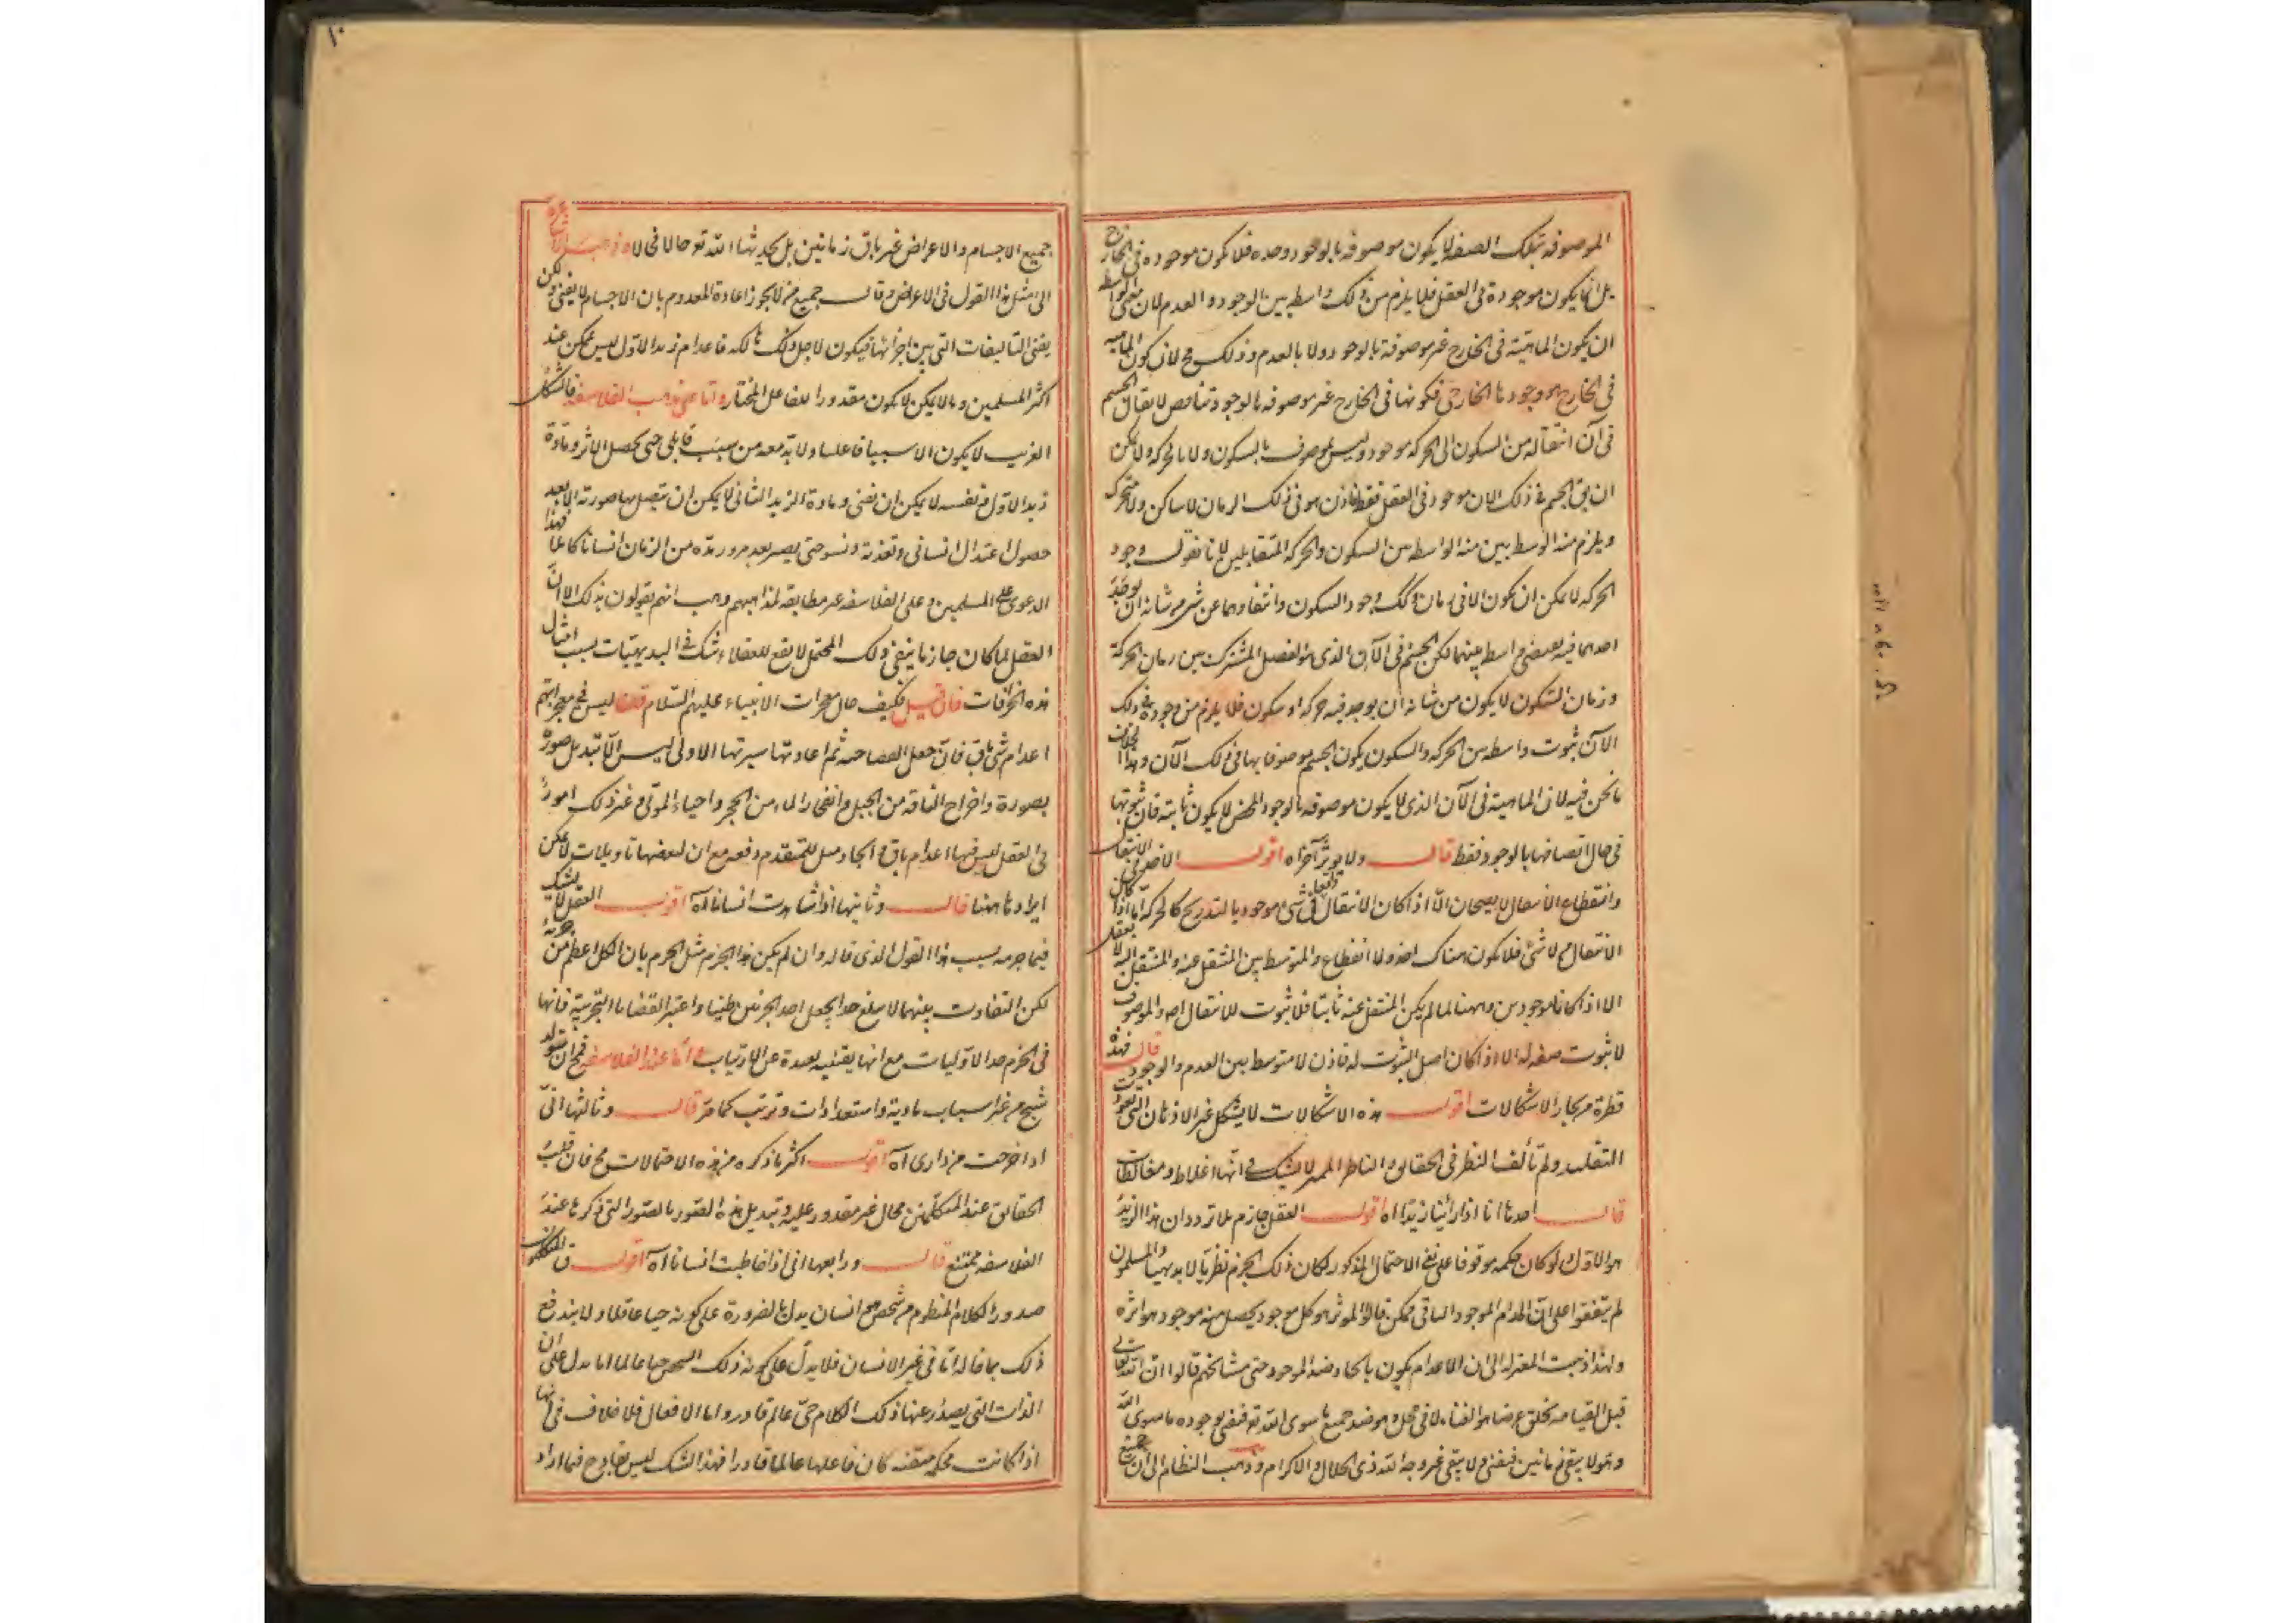 الموصوفه بتلك الصفه لا يكون موصوفه بالوجود وحده فلا يكون موجوده فى الخارج
بل انما يكون موجودة فى العقل فلا يلزم من ذلك واسطه بين الوجود و العدم لان معنى الواسطه
ان يكون الماهية فى الخارج غير موصوفة بالوجود ولا بالعدم وذلك مح لان كون الماهيه
فى الخارج هو وجودها الخارجى فكونها فى الخارج غير موصوفه بالوجود تناقض لا يقال الجسم
فى آن انتقاله من السكون الى الحركه موجود وليس بموصوف بالسكون ولا بالحركه ولا يمكن
ان يق الجسم فى ذلك الان موجود فى العقل فقط فاذن هو فى ذلك الزمان لا ساكن ولا متحرك
ويلزم منه الواسطه بين السكون والحركه المتقابلين لانا نقول وجود
الحركه لا يمكن ان يكون الا فى زمان وكك وجود السكون وانتفاوهما عن شى من شانه ان يوجد
احدهما فيه يقتضى واسطه بينهما لكن الجسم فى الآن الذى هو الفصل المشترك بين زمان الحركة
وزمان السكون لا يكون من شانه ان يوجد فيه حركه او سكون فلا يلزم من وجوده فى ذلك
الآن ثبوت واسطه بين الحركه والسكون يكون الجسم موصوفا بها فى ذلك الآن وهذا بخلاف
ما نحن فيه لان الماهية فى الآن الذى لا يكون موصوفه بالوجود المحض لا يكون ثابته فان ثبوتها
فى حال اتصافها بالوجود فقط قال ولا يوثر آخراه اقول الانتقال
وانقطاع الانتقال لا يصحان الا اذا كان الانتقال فى شى موجود بالتدريج كالحركه اما اذا كان
الانتقال من لا شئ فلا يكون هناك اخذ ولا انقطاع والمتوسط بين المنتقل عنه والمنتقل اليه لا يعقل
الا اذا كانا موجودين وههنا لما لم يكن المنتقل عنه ثابتا فلا ثبوت للانتقال اصلا
لا ثبوت صفه له الا اذا كان اصل الثبوت له فاذن لا متوسط بين العدم والوجود قال فهذه
قطرة من بحار الاشكالات اقول هذه الاشكالات لا يشكل غير الاذهان التى تعودت
التقليد ولم تألف النظر فى الحقايق والناظر المميز لا يشك فى انها اغلاط ومغالطات
قال احدها انا اذا راينا زيدا اه اقول العقل جازم بلا تردد ان هذا الزيد
هو الاول ولو كان حكمه موقوفا على نفى الاحتمال المذكور لكان ذلك الجزم نظريا لا بديهيا والمسلمون
لم يتفقوا على ان اعدام الموجود الباقى ممكن قالوا الموثر هو كل موجود يحصل منه موجود هو اثره
ولهذا ذهبت المعتزله الى ان الاعدام يكون بايجاد ضد الموجود حتى مشايخهم قالوا ان الله تعالى
قبل القيامه يخلق عرضا هو الفناء لا فى محل وهو ضد جميع ما سوى الله تع فيفنى بوجوده ما سوى الله
وهو لا يبقى زمانين فيفنى ولا يبقى غير وجه الله ذى الجلال والاكرام وذهب النظام الى ان جميع
جميع الاجسام والاعراض غير باق زمانين بل يحدثها الله تع حالا فى الا وذهبت الاشاعرة
الى مثل هذا القول فى الاعراض وقال جميع من لا يجوز اعادة المعدوم بان الاجسام لا يفنى ولكن
يفنى التاليفات التى بين اجزائها فيكون لاجل ذلك هالكه فاعدام زيد الاول ليس بممكن عند
اكثر المسلمين وما لا يمكن لا يكون مقدورا للفاعل المختار واما على مذهب الفلاسفه فالشكل
الغريب لا يكون الا سببا فاعليا ولا بد معه من سبب قابلى حتى يحصل الاثر ومادة
زيد الاول فى نفسه لا يمكن ان تفنى ومادة الزيد الثانى لا يمكن ان يتصل بها صورته الا بعد
حصول اعتدال انسانى وتغذية ونسو حتى يصير بعد مرور مدة من الزمان انسانا كاملا فهذا
الدعوى على المسلمين وعلى الفلاسفه غير مطابقه لمذاهبهم وهب انهم يقولون بذلك الا ان
العقل لما كان جازما ينفى ذلك المحتمل لا يقع للعقلاء شك فى البديهيات بسبب امثال
هذه الخرافات فان قيل فكيف حال معجزات الانبياء عليهم السلام قلنا ليس فى معجزاتهم
اعدام شئ باق فان جعل العصا حيه ثم اعادتها سيرتها الاولى ليس الا تبديل صورة
بصورة واخراج الناقه من الجبل وانفجار الماء من الحجر واحياء الموتى وغير ذلك امور
فى العقل ليس فيها اعدام باق وايجاد مثل للمتقدم دفعه مع ان لبعضها تاويلات لا يمكن
ايرادها ههنا قال وثانيها اذا شاهدت انسانا اه اقول العقل لا يشك
فيما جزمه بسبب هذا القول الذى قاله وان لم يكن هذا الجزم مثل الجزم بان الكل اعظم من جزئه
لكن التفاوت بينهما لا يبلغ حدا يجعل احد الجزمين ظنيا واعتبر القضايا التجربية فانها
فى الجزم حد الاوليات مع انها يقينيه بعيدة عن الارتياب واما عند الفلاسفه فمح ان يتولد
شيخ من غير اسباب مادية واستعدادات وترتيب كما مر قال وثالثها انى
اذا خرجت من دارى اه اقول اكثر ما ذكره من هذه الاحتمالات مح فان قلب
الحقايق عند المتكلمين محال غير مقدور عليه وتبديل هذه الصور بالصور التى ذكرها عند
الفلاسفه ممتنع قال ورابعها انى اذا خاطبت انسانا اه اقول ق المتكلمون
صدور الكلام المنظوم من شخص هو انسان يدل بالضرورة على كونه حيا عاقلا ولا يندفع
ذلك بما قاله اما فى غير الانسان فلا يدل على كونه ذلك الشخص حيا عالما انما يدل على ان
الذات التى يصدر عنها ذلك الكلام حى عالم قادر واما الافعال فلا خلاف فى انها
اذا كانت محكمه متقنه كان فاعلها عالما قادرا فهذا الشك ليس بقادح فيما اراد